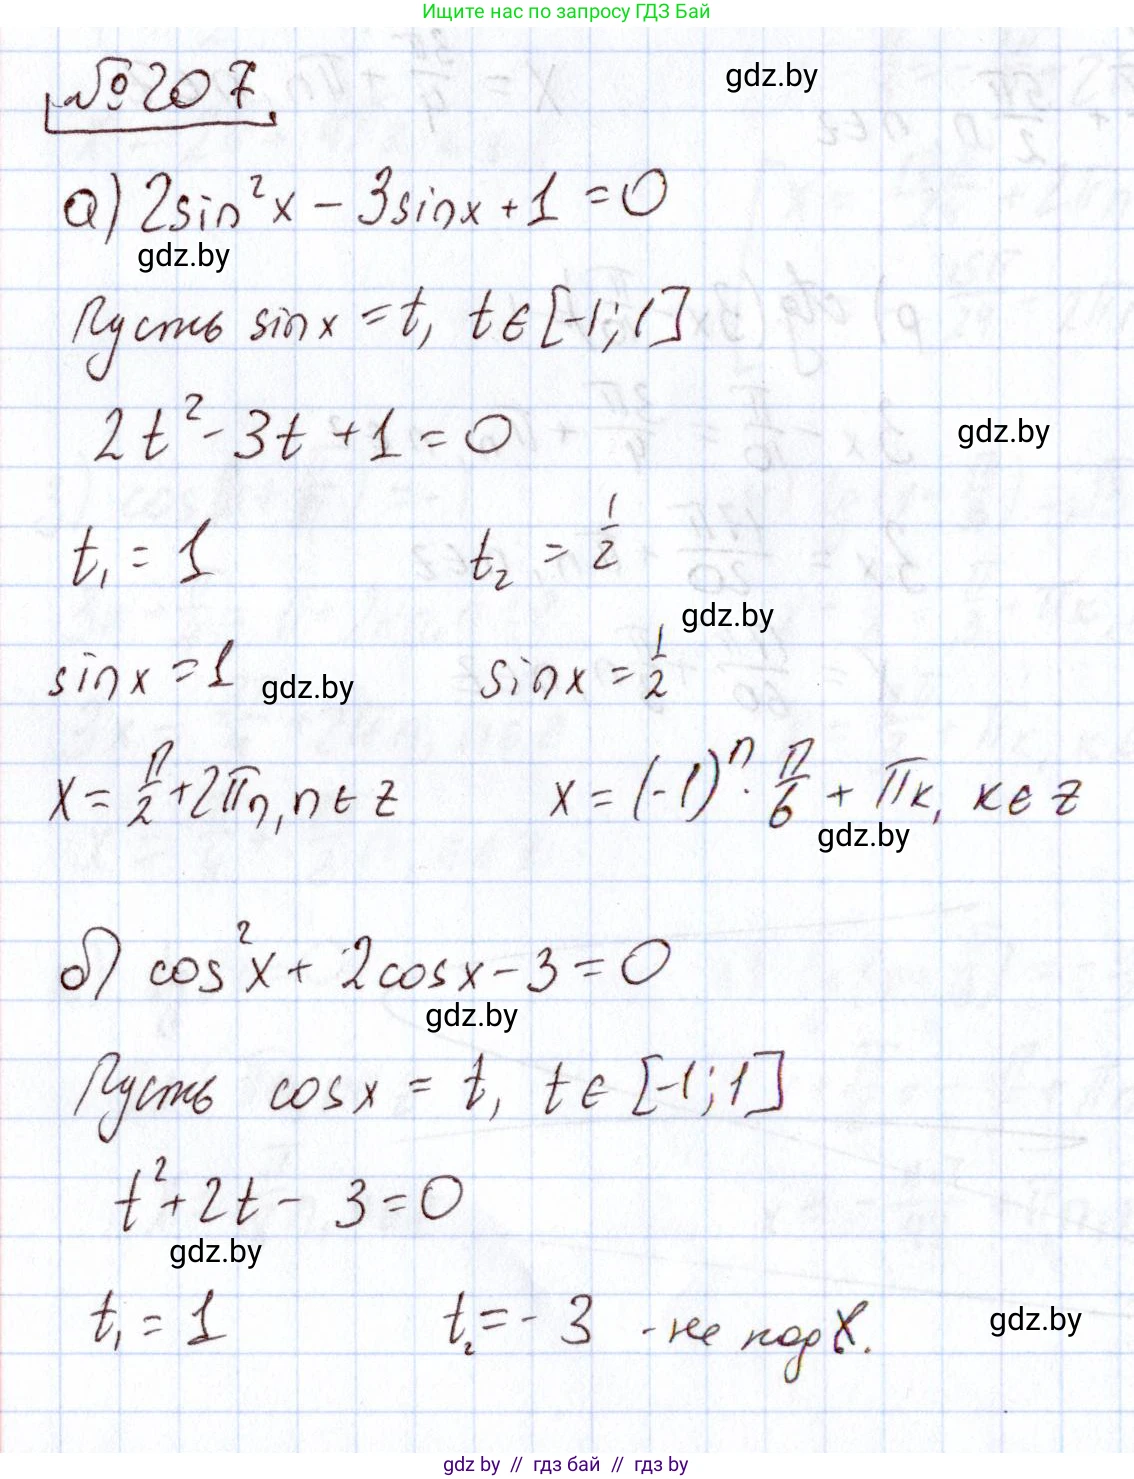 Ищите нас по запросу ГДЗ Бай
№207
gdz.by
а) 2sin²x - 3sinx + 1 = 0
gdz.by
Пусть sinx = t, t ∈ [-1; 1]
2t² - 3t + 1 = 0
gdz.by
t₁ = 1 t₂ = 1/2
gdz.by
sinx = 1 sinx = 1/2
gdz.by
x = π/2 + 2πn, n ∈ z x = (-1)ⁿ · π/6 + πк, к ∈ z
gdz.by
б) cos²x + 2cosx - 3 = 0
gdz.by
Пусть cosx = t, t ∈ [-1; 1]
t² + 2t - 3 = 0
gdz.by
t₁ = 1 t₂ = - 3 - не подх.
gdz.by
gdz by // гдз бай // гдз by